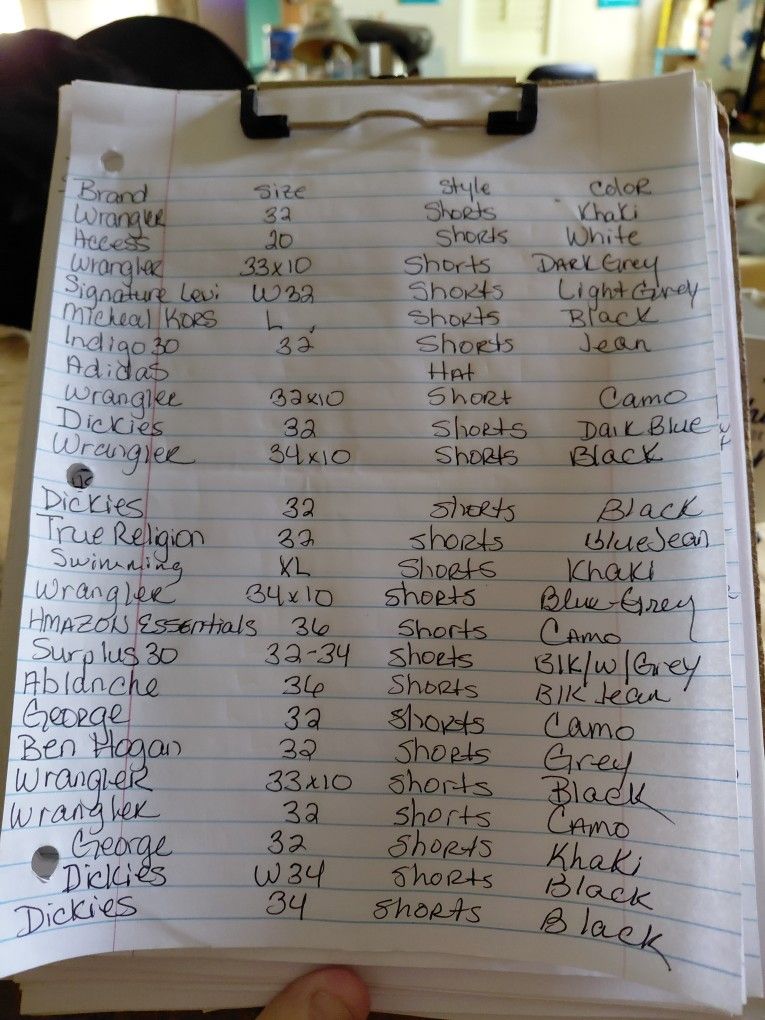 Brand Size Style Color
Wrangler 32 Shorts Khaki
Access 20 Shorts White
Wrangler 33x10 Shorts Dark Grey
Signature Levi W32 Shorts Light Grey
Micheal Kors L Shorts Black
Indigo 30 32 Shorts Jean
Adidas Hat
Wrangler 32x10 Short Camo
Dickies 32 Shorts Dark Blue
Wrangler 34x10 Shorts Black
Dickies 32 Shorts Black
True Religion 32 Shorts Blue Jean
Swimming XL Shorts Khaki
Wrangler 34x10 Shorts Blue-Grey
Amazon Essentials 36 Shorts Camo
Surplus 30 32-34 Shorts Blk/W/Grey
Ablanche 36 Shorts Blk Jean
George 32 Shorts Camo
Ben Hogan 32 Shorts Grey
Wrangler 33x10 Shorts Black
Wrangler 32 Shorts Camo
George 32 Shorts Khaki
Dickies W34 Shorts Black
Dickies 34 Shorts Black